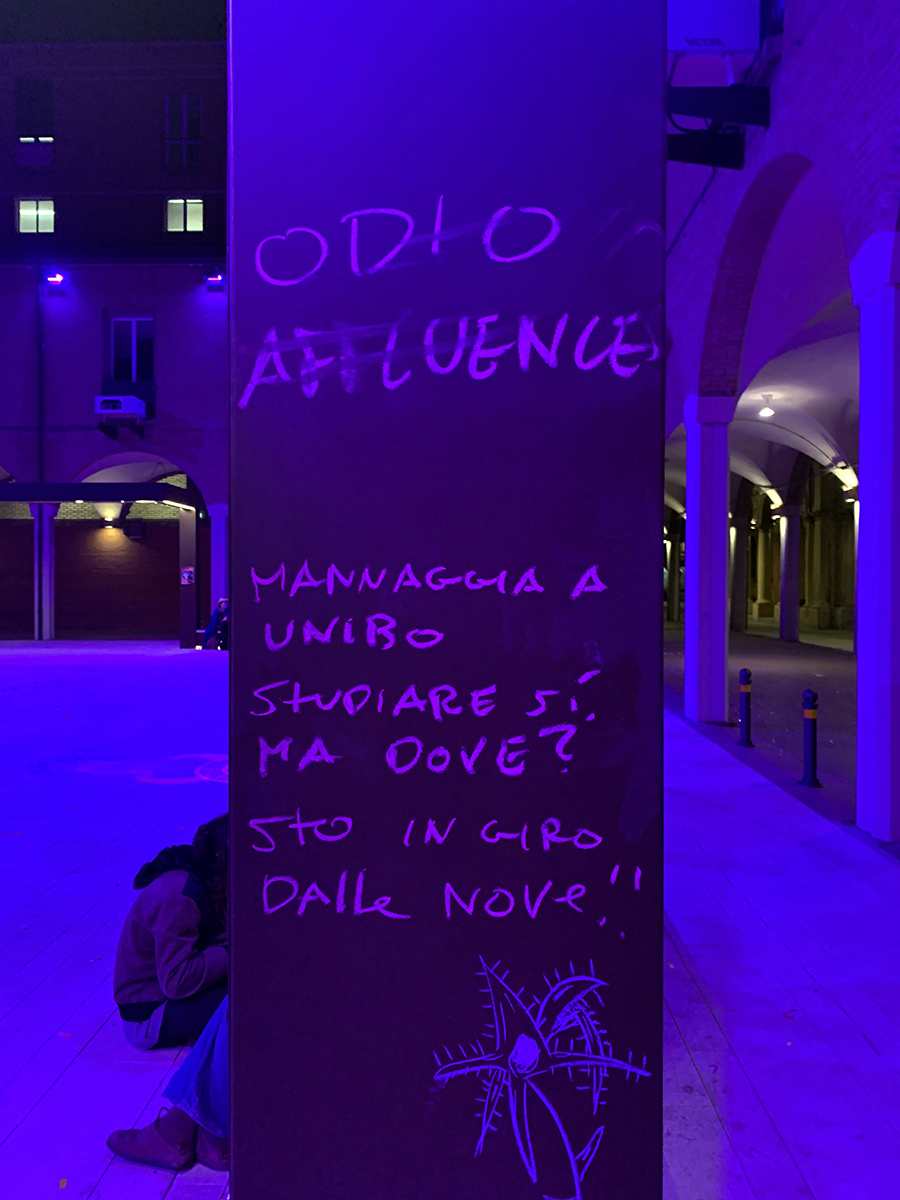 ODIO
AFFLUENCES
MANNAGGIA A
UNIBO
STUDIARE SÍ
MA DOVE?
STO IN GIRO
DALLE NOVE!!